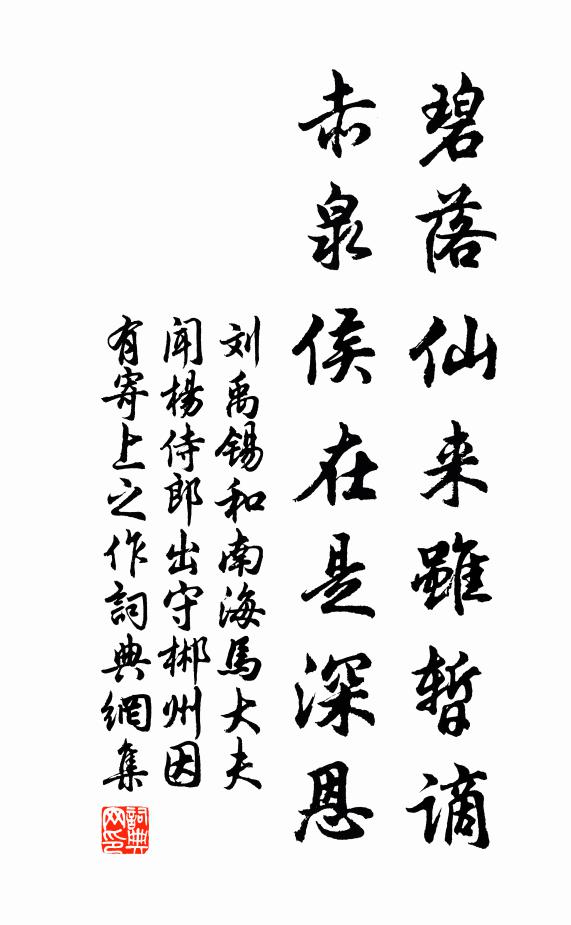 碧落仙来雖暫谪
赤泉侯在是深恩
刘禹锡和南海馬大夫
闻楊侍郎出守郴州因
有寄上之作詞典網集
詞典
网印